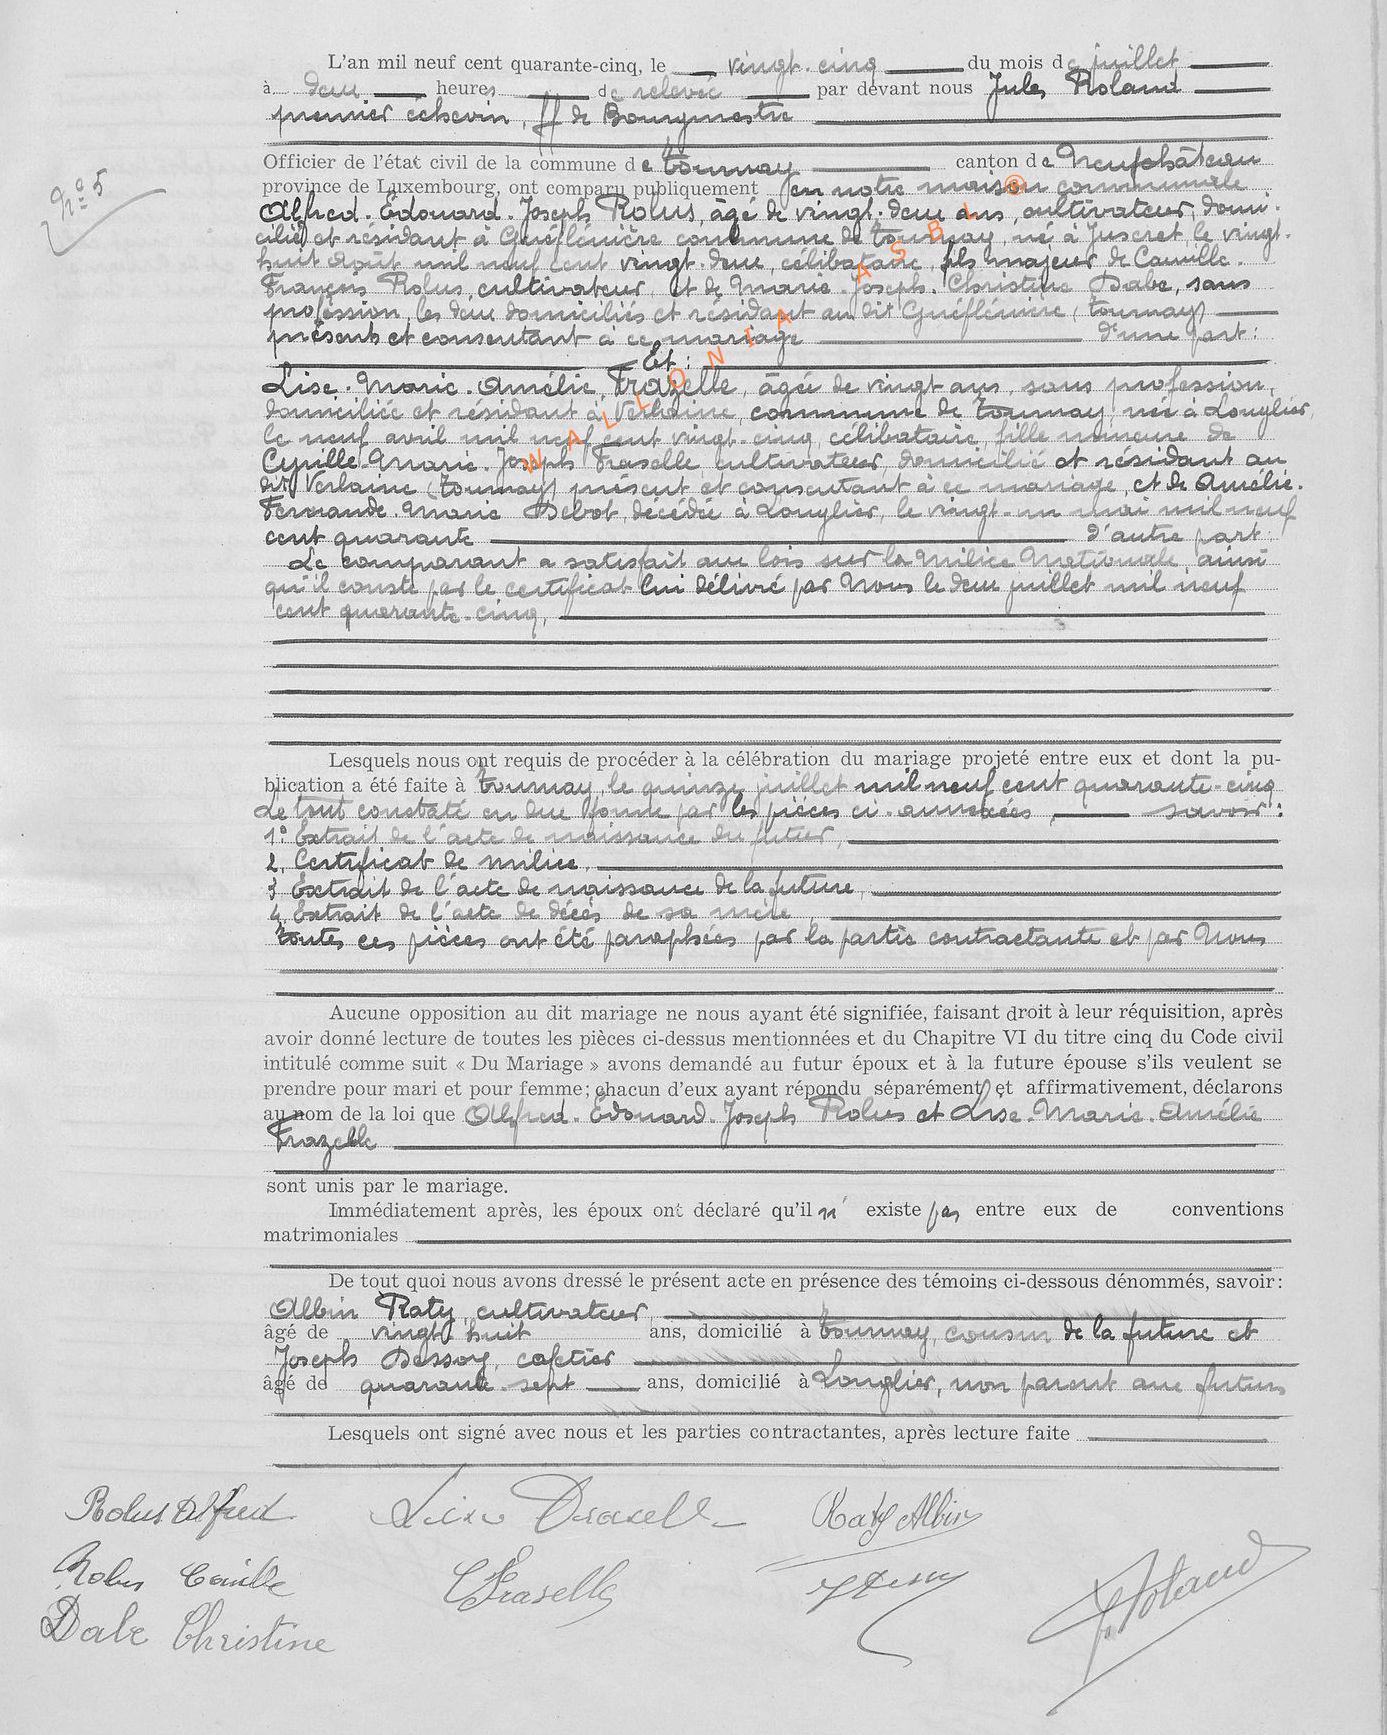 L'an mil neuf cent quarante-cinq, le vingt-cinq du mois de juillet
à deux heures de relevée par devant nous Jules Roland
premier échevin, ff de Bourgmestre
Officier de l'état civil de la commune de Tournay canton de Neufchâteau
N° 5
province de Luxembourg, ont comparu publiquement en notre maison communale
Alfred-Édouard-Joseph Rolus, âgé de vingt-deux ans, cultivateur, domi-
cilié et résidant à Gueflémière commune de Tournay, né à Juseret, le vingt-
huit août mil neuf cent vingt-deux, célibataire, fils majeur de Camille-
François Rolus, cultivateur, et de Marie-Joseph-Christine Dabe, sans
profession, les deux domiciliés et résidant au dit Gueflémière (Tournay)
présents et consentant à ce mariage d'une part:
Et:
Lise-Marie-Amélie Frazelle, âgée de vingt ans, sans profession,
domiciliée et résidant à Verlaine, commune de Tournay, née à Longlier,
le neuf avril mil neuf cent vingt-cinq, célibataire, fille mineure de
Cyrille-Marie-Joseph Fraselle cultivateur, domicilié et résidant au
dit Verlaine (Tournay) présent et consentant à ce mariage, et de Amélie-
Fernande-Marie Debot, décédée à Longlier, le vingt-un mai mil neuf
cent quarante d'autre part.
Le comparant a satisfait aux lois sur la Milice Nationale ainsi
qu'il conste par le certificat lui délivré par Nous le deux juillet mil neuf
cent quarante-cinq,
Lesquels nous ont requis de procéder à la célébration du mariage projeté entre eux et dont la pu-
blication a été faite à Tournay, le quinze juillet mil neuf cent quarante-cinq
Le tout constaté en due forme par les pièces ci-annexées, savoir:
1° Extrait de l'acte de naissance du futur,
2. Certificat de milice,
3 Extrait de l'acte de naissance de la future,
4. Extrait de l'acte de décès de sa mère,
Toutes ces pièces ont été paraphées par la partie contractante et par Nous
Aucune opposition au dit mariage ne nous ayant été signifiée, faisant droit à leur réquisition, après
avoir donné lecture de toutes les pièces ci-dessus mentionnées et du Chapitre VI du titre cinq du Code civil
intitulé comme suit « Du Mariage » avons demandé au futur époux et à la future épouse s'ils veulent se
prendre pour mari et pour femme; chacun d'eux ayant répondu séparément et affirmativement, déclarons
au nom de la loi que Alfred-Édouard-Joseph Rolus et Lise-Marie-Amélie
Frazelle
sont unis par le mariage.
Immédiatement après, les époux ont déclaré qu'il n' existe pas entre eux de conventions
matrimoniales
De tout quoi nous avons dressé le présent acte en présence des témoins ci-dessous dénommés, savoir:
Albin Raty, cultivateur,
âgé de vingt huit ans, domicilié à Tournay, cousin de la future et
Joseph Dessoy, cafetier
âgé de quarante-sept ans, domicilié à Longlier, non parent aux futurs
Lesquels ont signé avec nous et les parties contractantes, après lecture faite
Rolus Alfred Lise Fraselle Raty Albin
Rolus Camille C Fraselle J Dessoy J. Roland
Dabe Christine
WALLONIA ASBL ®